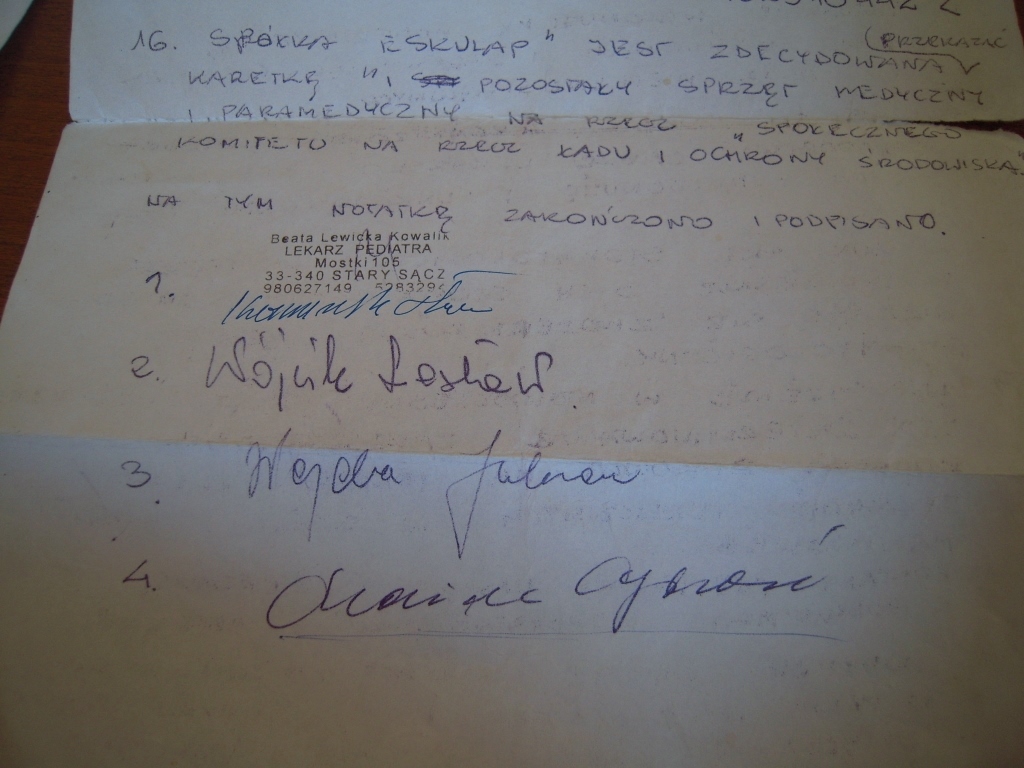 16. SPÓŁKA ESKULAP" JEST ZDECYDOWANA (PRZEKAZAĆ
KARETKĘ "I POZOSTAŁY SPRZĘT MEDYCZNY
I PARAMEDYCZNY NA RZECZ "SPOŁECZNEGO
KOMITETU NA RZECZ ŁADU I OCHRONY ŚRODOWISKA"
NA TYM NOTATKĘ ZAKOŃCZONO I PODPISANO.
Beata Lewicka Kowalik
LEKARZ PEDIATRA
Mostki 105
33-340 STARY SĄCZ
980627149 5283294
1.
2. Wójcik
3. Wojdba
4.